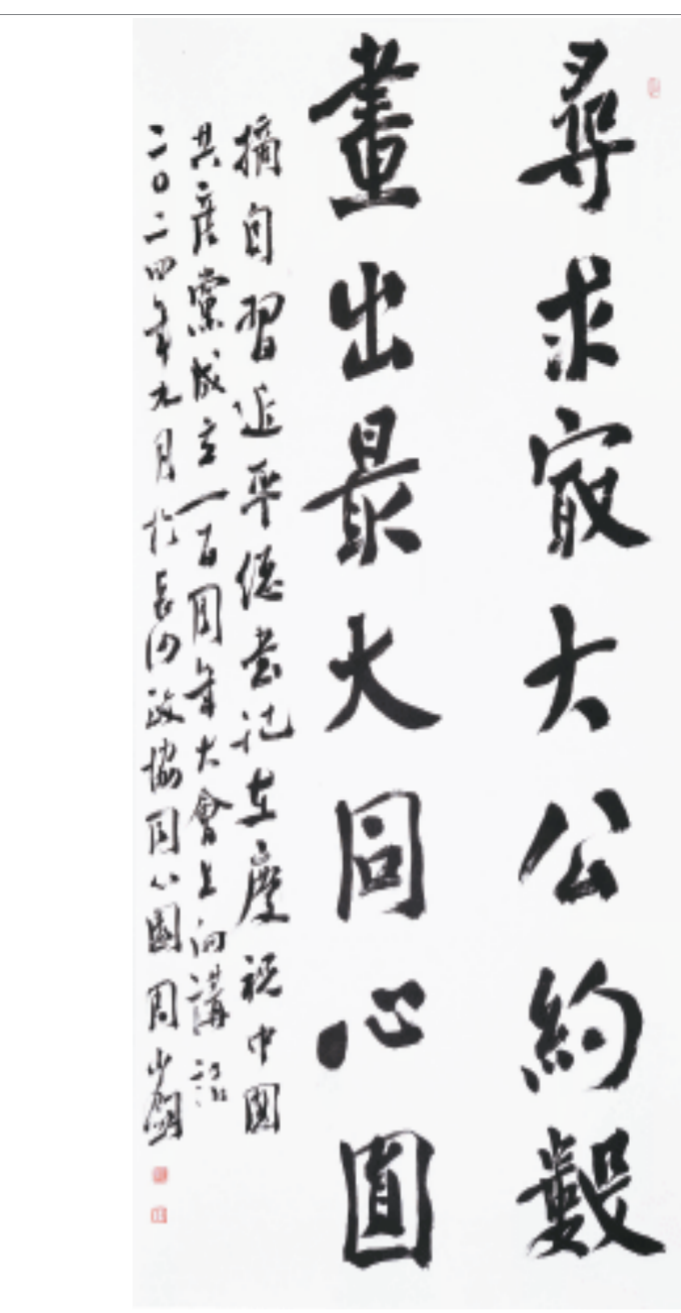 尋求㝡大公約數
畫出最大同心圓
摘自習近平總書記在慶祝中國
共產黨成立一百周年大會上的講話
二〇二四年九月於長沙政協同心園 周